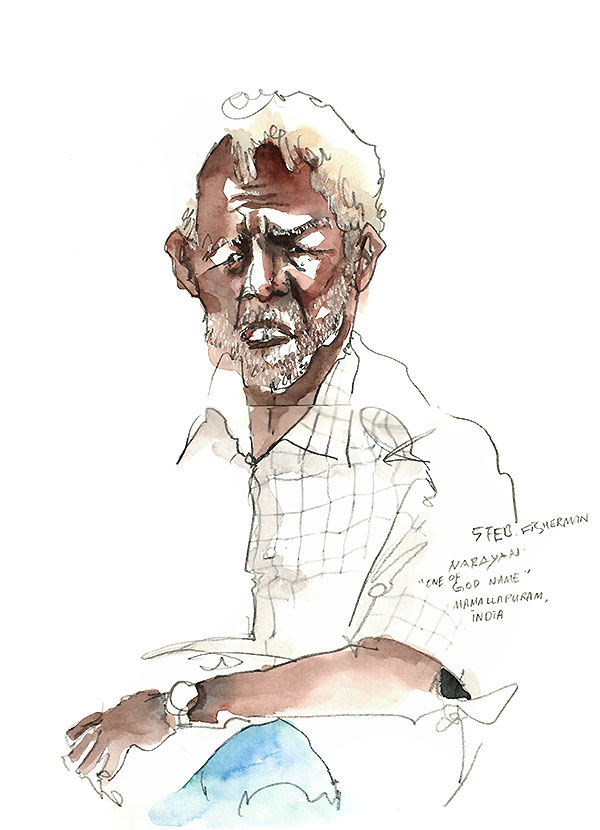 5 FEB. FISHERMAN
NARAYAN.
"ONE OF GOD NAME"
MAMALLAPURAM,
INDIA